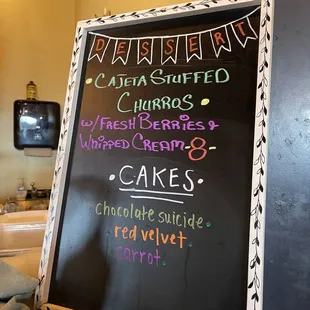 DESSERT
• CAJETA STUFFED
CHURROS •
w/FRESH BERRIES &
WHIPPED CREAM -8-
• CAKES •
chocolate suicide.
red velvet.
carrot.